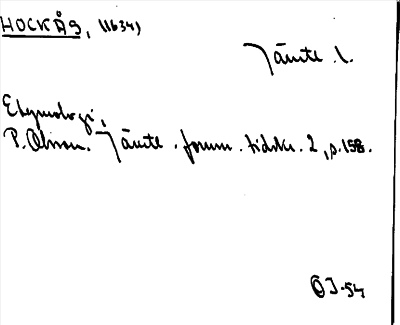 HOCKÅS, (1634)
Jämte. l.
Etymologi,
P. Olsson. Jämte. fornm. tidskr. 2, p. 158.
ÖJ-54